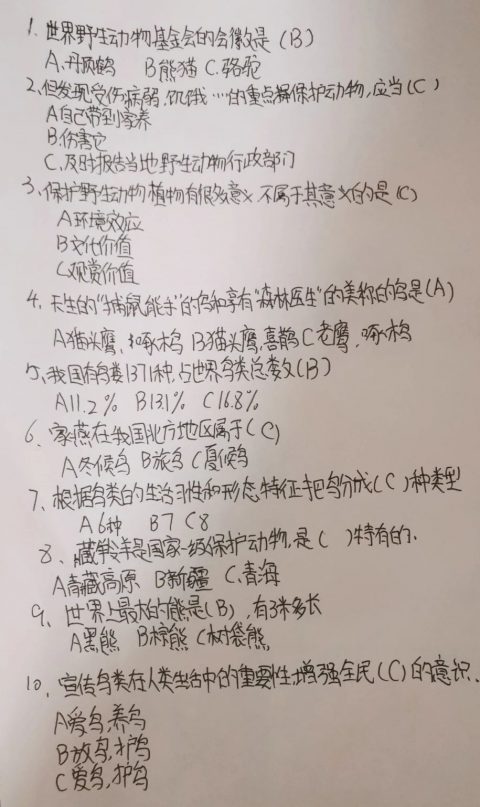 1. 世界野生动物基金会的会徽是（B）
A.丹顶鹤 B熊猫 C.骆驼
2.但发现受伤病弱、饥饿…的重点保护动物,应当(C)
A自己带到家养
B.伤害它
C.及时报告当地野生动物行政部门
3、保护野生动物植物有很多意义,不属于其意义的是(C)
A环境效应
B文化价值
C观赏价值
4、天生的“捕鼠能手”的鸟和享有“森林医生”的美称的鸟是(A)
A猫头鹰、啄木鸟 B猫头鹰,喜鹊 C老鹰,啄木鸟
5、我国有鸟类1371种,占世界鸟类总类数(B)
A11.2% B13.1% C16.8%
6、家燕在我国北方地区属于(C)
A冬候鸟 B旅鸟 C夏候鸟
7、根据鸟类的生活习性和形态特征,把鸟分成(C)种类型
A6种 B7 C8
8、藏羚羊是国家一级保护动物,是( )特有的.
A青藏高原 B新疆 C.青海
9、世界上最大的熊是(B),有3米多长
A黑熊 B棕熊 C树袋熊
10、宣传鸟类在人类生活中的重要性,增强全民(C)的意识.
A爱鸟,养鸟
B放鸟,护鸟
C爱鸟,护鸟